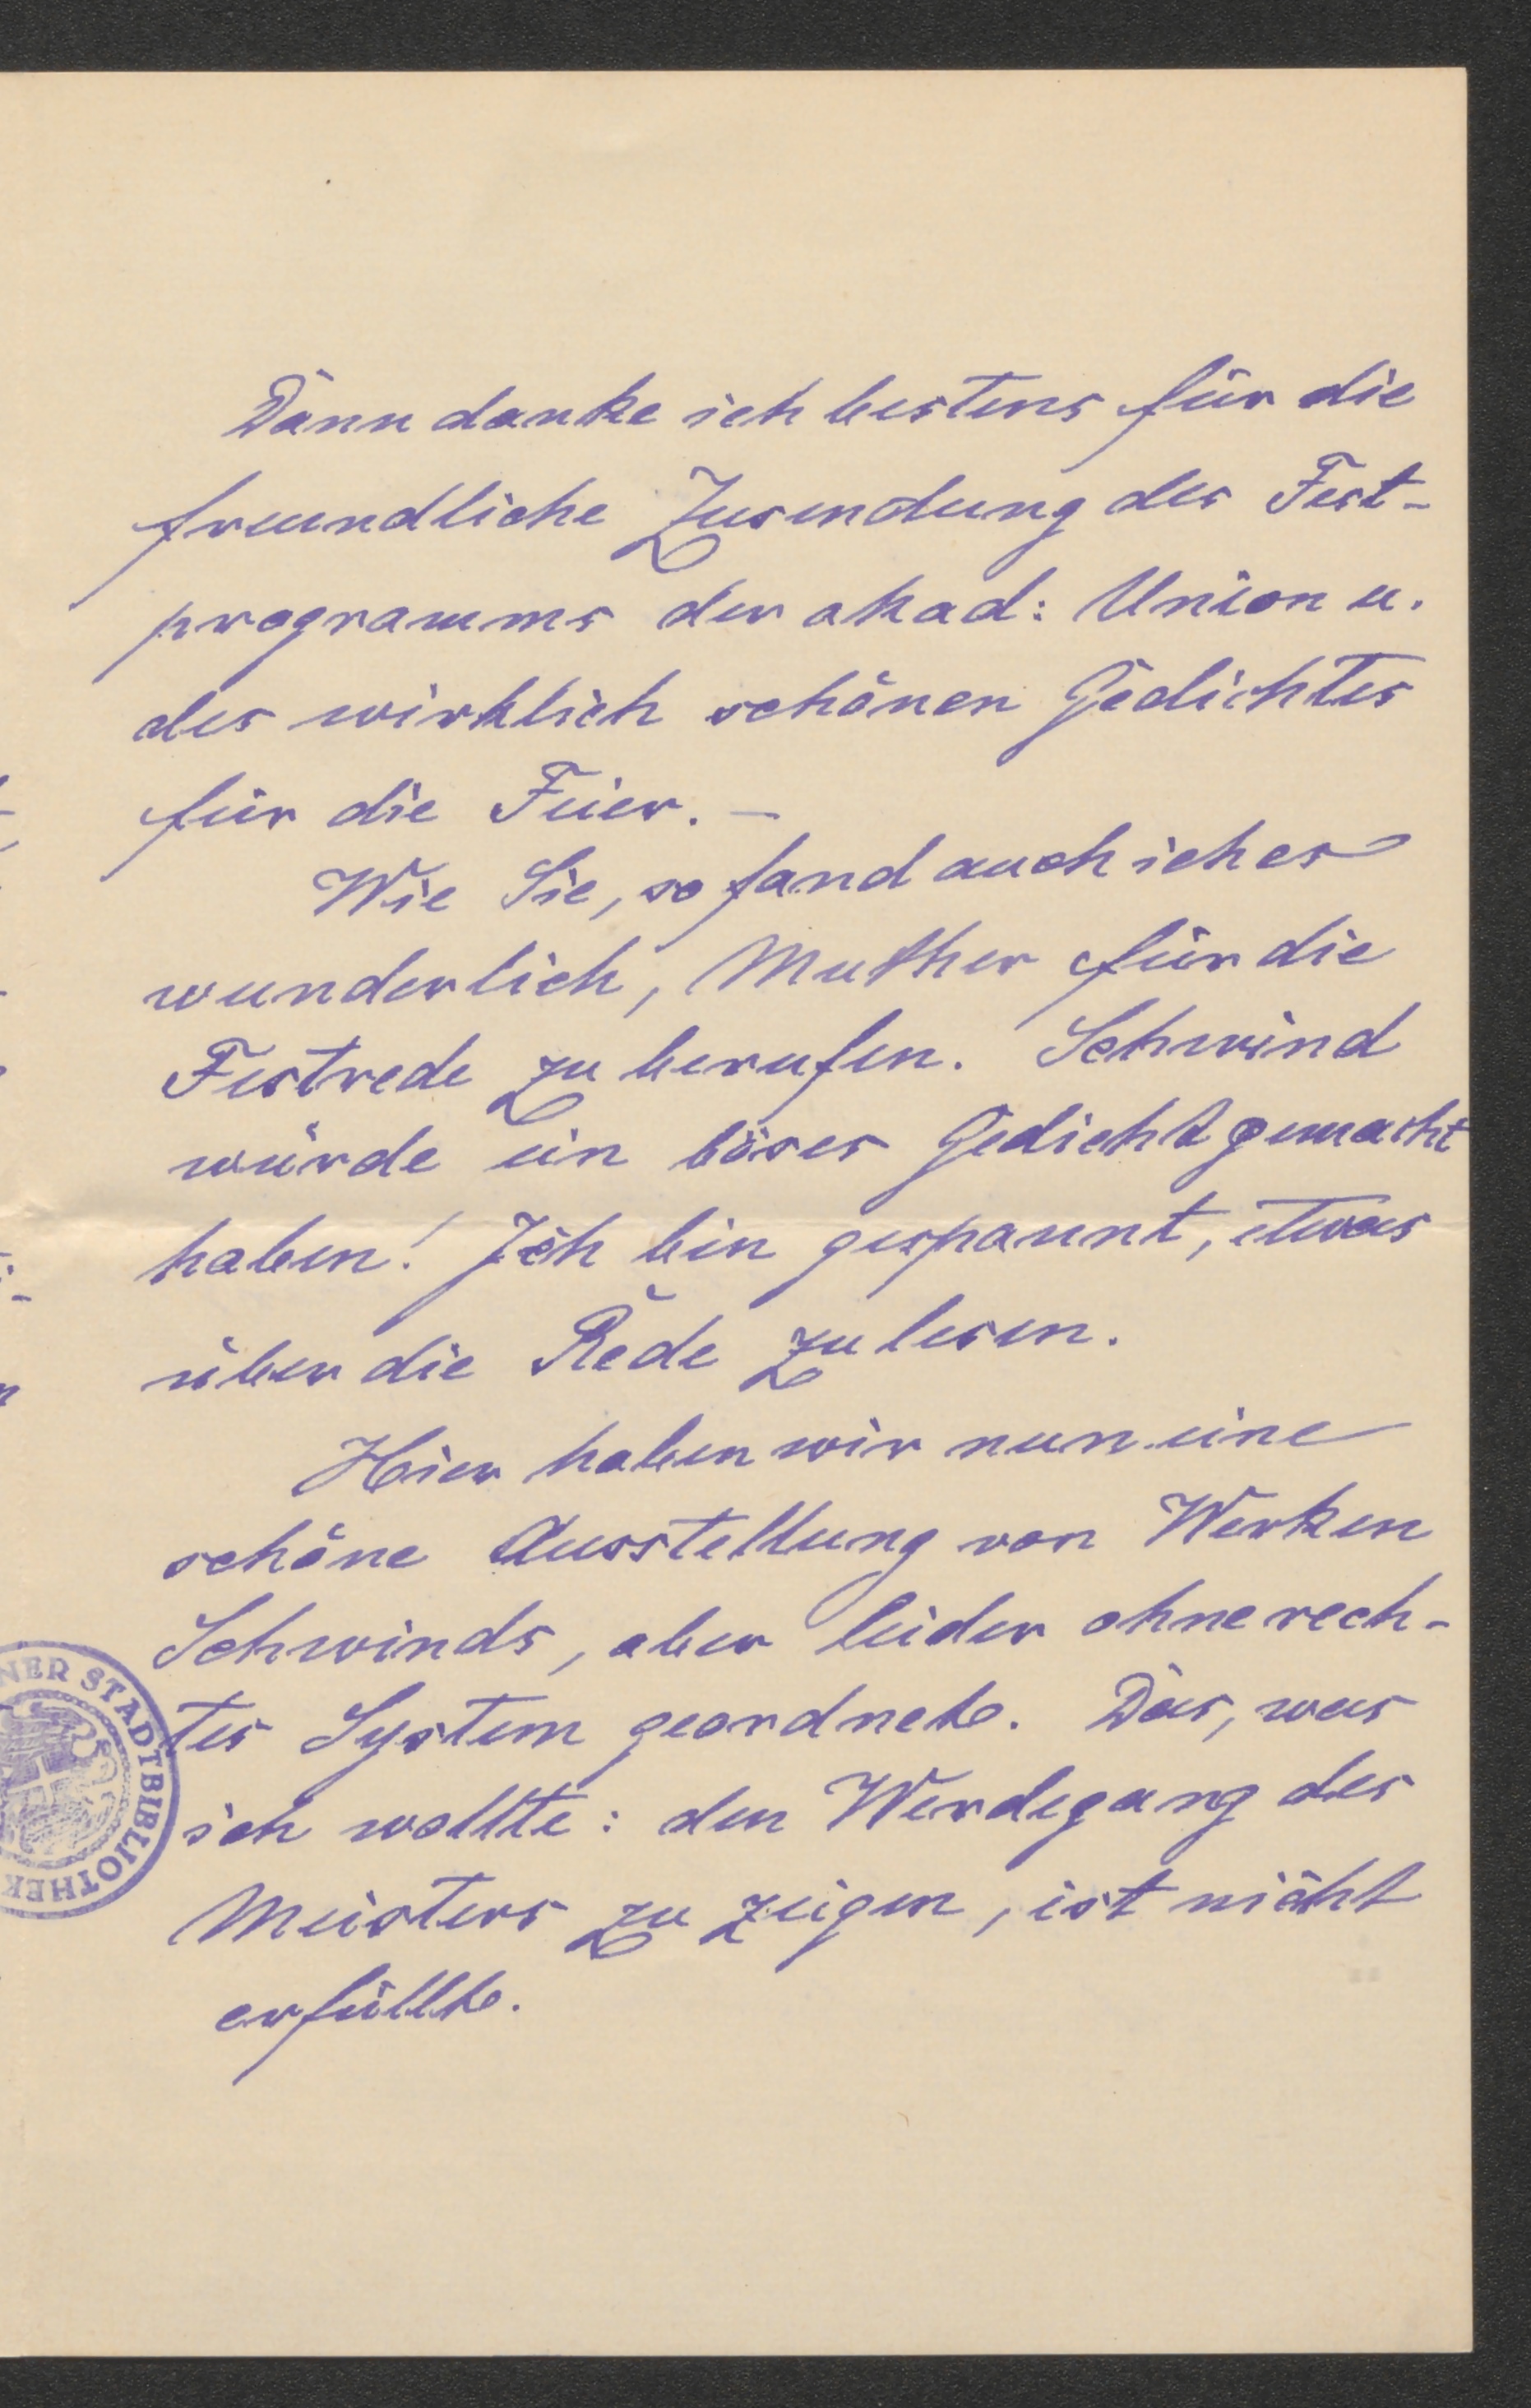 Dann danke ich bestens für die
freundliche Zusendung des Fest-
programms der akad: Union u.
des wirklich schönen Gedichtes
für die Feier. —
Wie Sie, so fand auch ich es
wunderlich, Muther für die
Festrede zu berufen. Schwind
würde ein böses Gedicht gemacht
haben! Ich bin gespannt, etwas
über die Rede zu lesen.
Hier haben wir nun eine
schöne Ausstellung von Werken
Schwinds, aber leider ohne rech-
tes System geordnet. Das, was
ich wollte: den Werdegang des
Meisters zu zeigen, ist nicht
erfüllt.
NER STADTBIBLIOTHEK